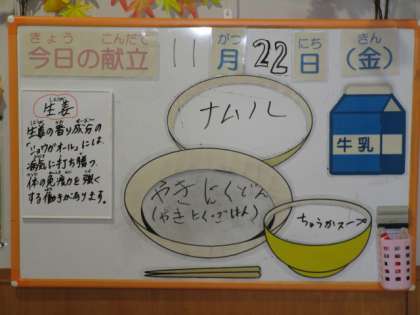 きょう こんだて がつ にち きん
今日の献立 11月22日(金)
しょうが
生姜
生姜の香り成分の
「ショウガオール」には、
病気に打ち勝つ、
体の免疫力を強く
する働きがあります。
ナムル
牛乳
やきにくどん
(やきにく・ごはん)
ちゅうかスープ